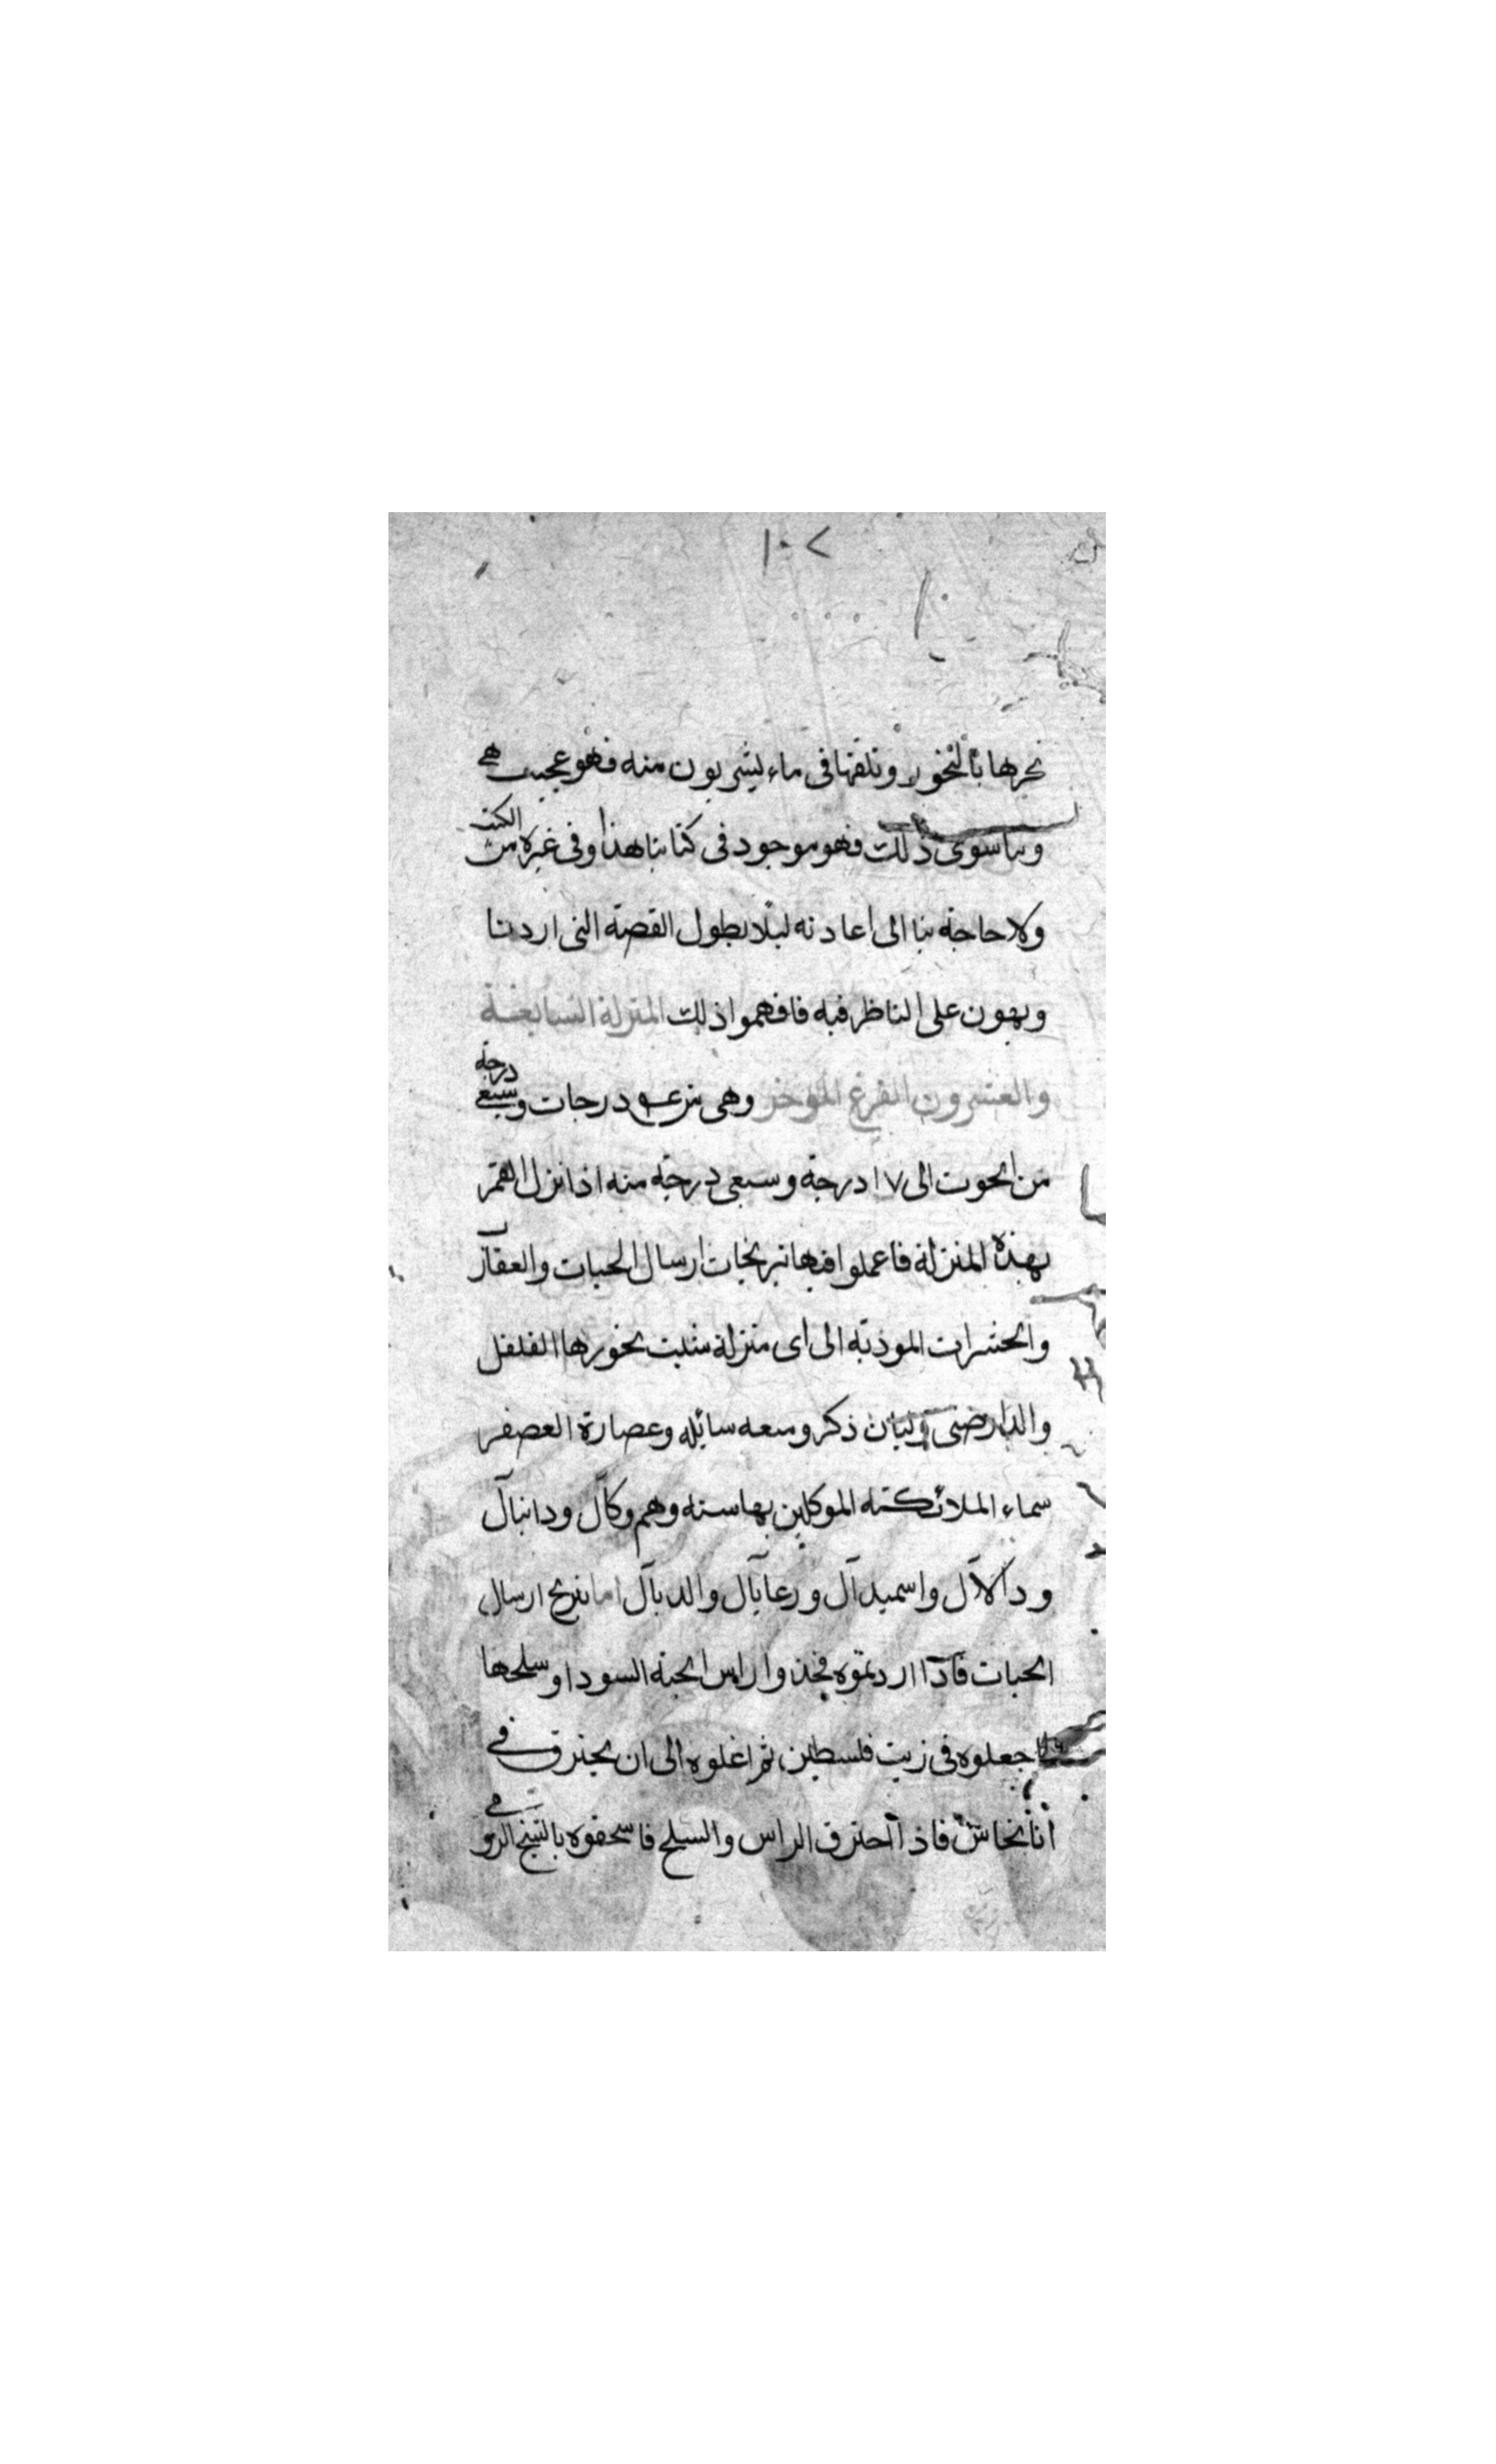 ١٠٧
نجرها بالبخور وتلقها فى ماء يشربون منه فهو عجيب
وما سوى ذلك فهو موجود فى كتابنا هذا وفى غيره من الكتب
ولا حاجة بنا الى اعادته ليلا يطول القصة التى اردنا
ويهون على الناظر فيه فافهموا ذلك المنزلة السابعة
والعشرون الفرغ الموخر وهى من درجات وسبعى درجة
من الحوت الى ١٧ درجة وسبعى درجة منه اذا نزل القمر
بهذه المنزلة فاعملوا فيها نيرنجات ارسال الحيات والعقارب
والحشرات الموذية الى اى منزلة شيت بخورها الفلفل
ولبان ذكر وميعه سائله وعصارة العصفر
سماء الملائكته الموكلين بها سته وهم وكآل ودانيآل
ودكلاآل واسميدآل ورعايآل والديآل اما نيرنج ارسال
الحيات فآذا اردتموه فخذوا راس الحية السودا وسلحها
جعلوه فى زيت فلسطين ثم اغلوه الى ان يحترق فى
انا نحاس فاذا احترق الراس والسلح فاسحقوه